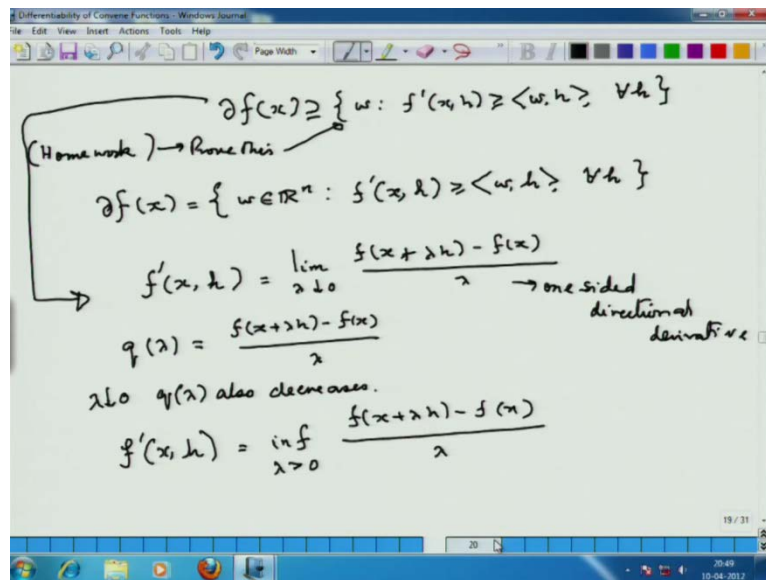 Differentiability of Convene Functions - Windows Journal
File Edit View Insert Actions Tools Help
Page Width
∂f(x) ⊇ { w : f'(x,h) ≥ <w,h>, ∀h }
(Homework) → Prove this
∂f(x) = { w ∈ ℝⁿ : f'(x,h) ≥ <w,h>, ∀h }
f'(x,h) = lim λ↓0 (f(x+λh) - f(x)) / λ → one sided directional derivative
q(λ) = (f(x+λh) - f(x)) / λ
λ↓0 q(λ) also decreases.
f'(x,h) = inf λ>0 (f(x+λh) - f(x)) / λ
19 / 31
20
20:49
10-04-2012